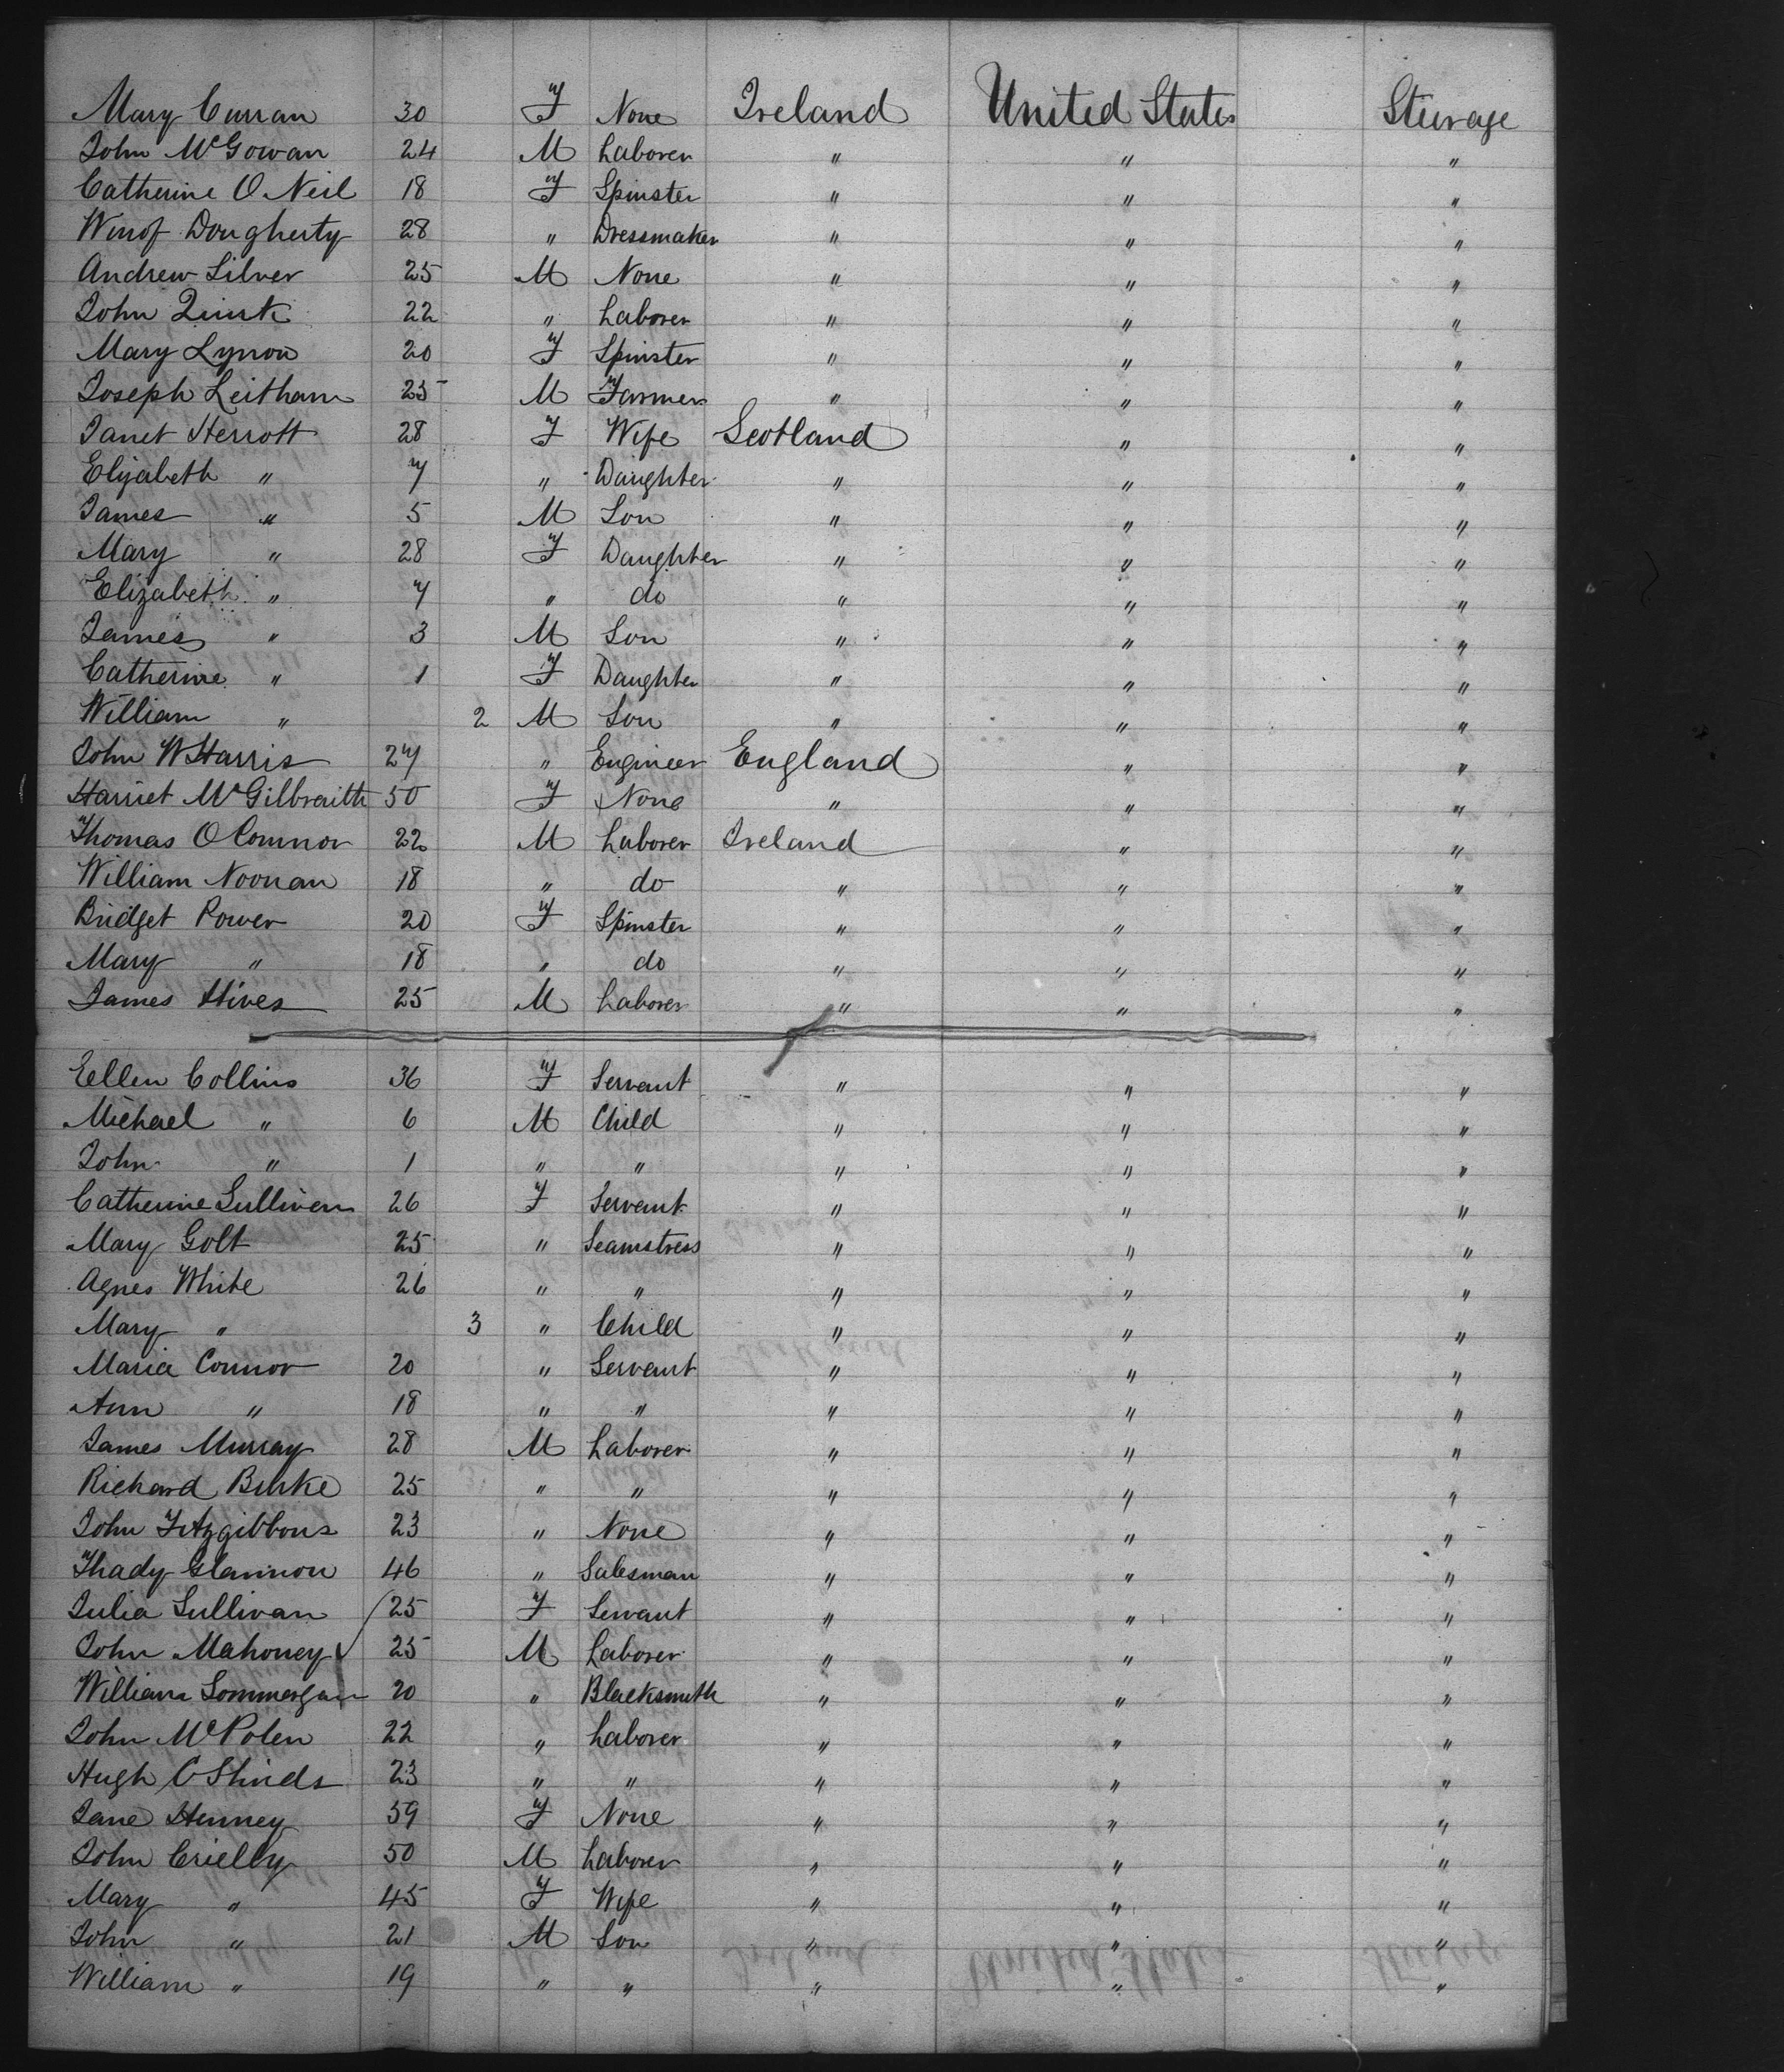 Mary Curran 30 F None Ireland United States Steerage
John McGowan 24 M Laborer " " "
Catherine O Neil 18 F Spinster " " "
Winof Dougherty 28 " Dressmaker " " "
Andrew Silver 25 M None " " "
John 22 " Laborer " " "
Mary Lynow 20 F Spinster " " "
Joseph Leitham 25 M Farmer " " "
Janet Herrott 28 F Wife Scotland " "
Elizabeth " 7 " Daughter " " "
James " 5 M Son " " "
Mary " 28 F Daughter " " "
Elizabeth " 7 " do " " "
James " 3 M Son " " "
Catherine " 1 F Daughter " " "
William " 2 M Son " " "
John W Harris 27 " Engineer England " "
Harriet McGilbraith 50 F None " " "
Thomas O Connor 22 M Laborer Ireland " "
William Noonan 18 " do " " "
Bridget Power 20 F Spinster " " "
Mary " 18 " do " " "
James Hives 25 M Laborer " " "
Ellen Collins 36 F Servant " " "
Michael " 6 M Child " " "
John " 1 " " " " "
Catherine Sullivan 26 F Servant " " "
Mary Golt 25 " Seamstress " " "
Agnes White 26 " " " " "
Mary " 3 " Child " " "
Maria Connor 20 " Servant " " "
Ann " 18 " " " " "
James Murray 28 M Laborer " " "
Richard Burke 25 " " " " "
John Fitzgibbons 23 " None " " "
Thady Glannon 46 " Salesman " " "
Julia Sullivan 25 F Servant " " "
John Mahoney 25 M Laborer " " "
William 20 " Blacksmith " " "
John McPolen 22 " Laborer " " "
Hugh 23 " " " " "
Jane Henney 59 F None " " "
John Crielly 50 M Laborer " " "
Mary " 45 F Wife " " "
John " 21 M Son " " "
William " 19 " " " " "